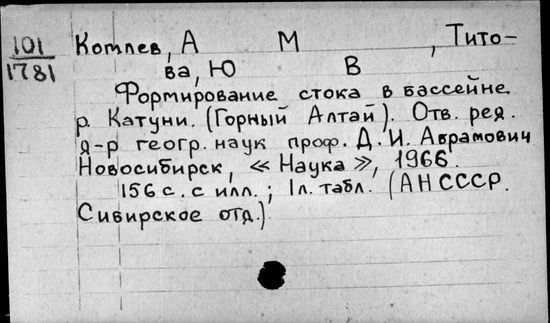 101
1781
Комлев, А М , Тито-
ва, Ю В
Формирование стока в бассейне
р. Катуни. (Горный Алтай). Отв. ред.
д-р геогр. наук проф. Д. И. Абрамович
Новосибирск, « Наука », 1966.
156 с. с илл. ; 1 л. табл. (АН СССР.
Сибирское отд.)